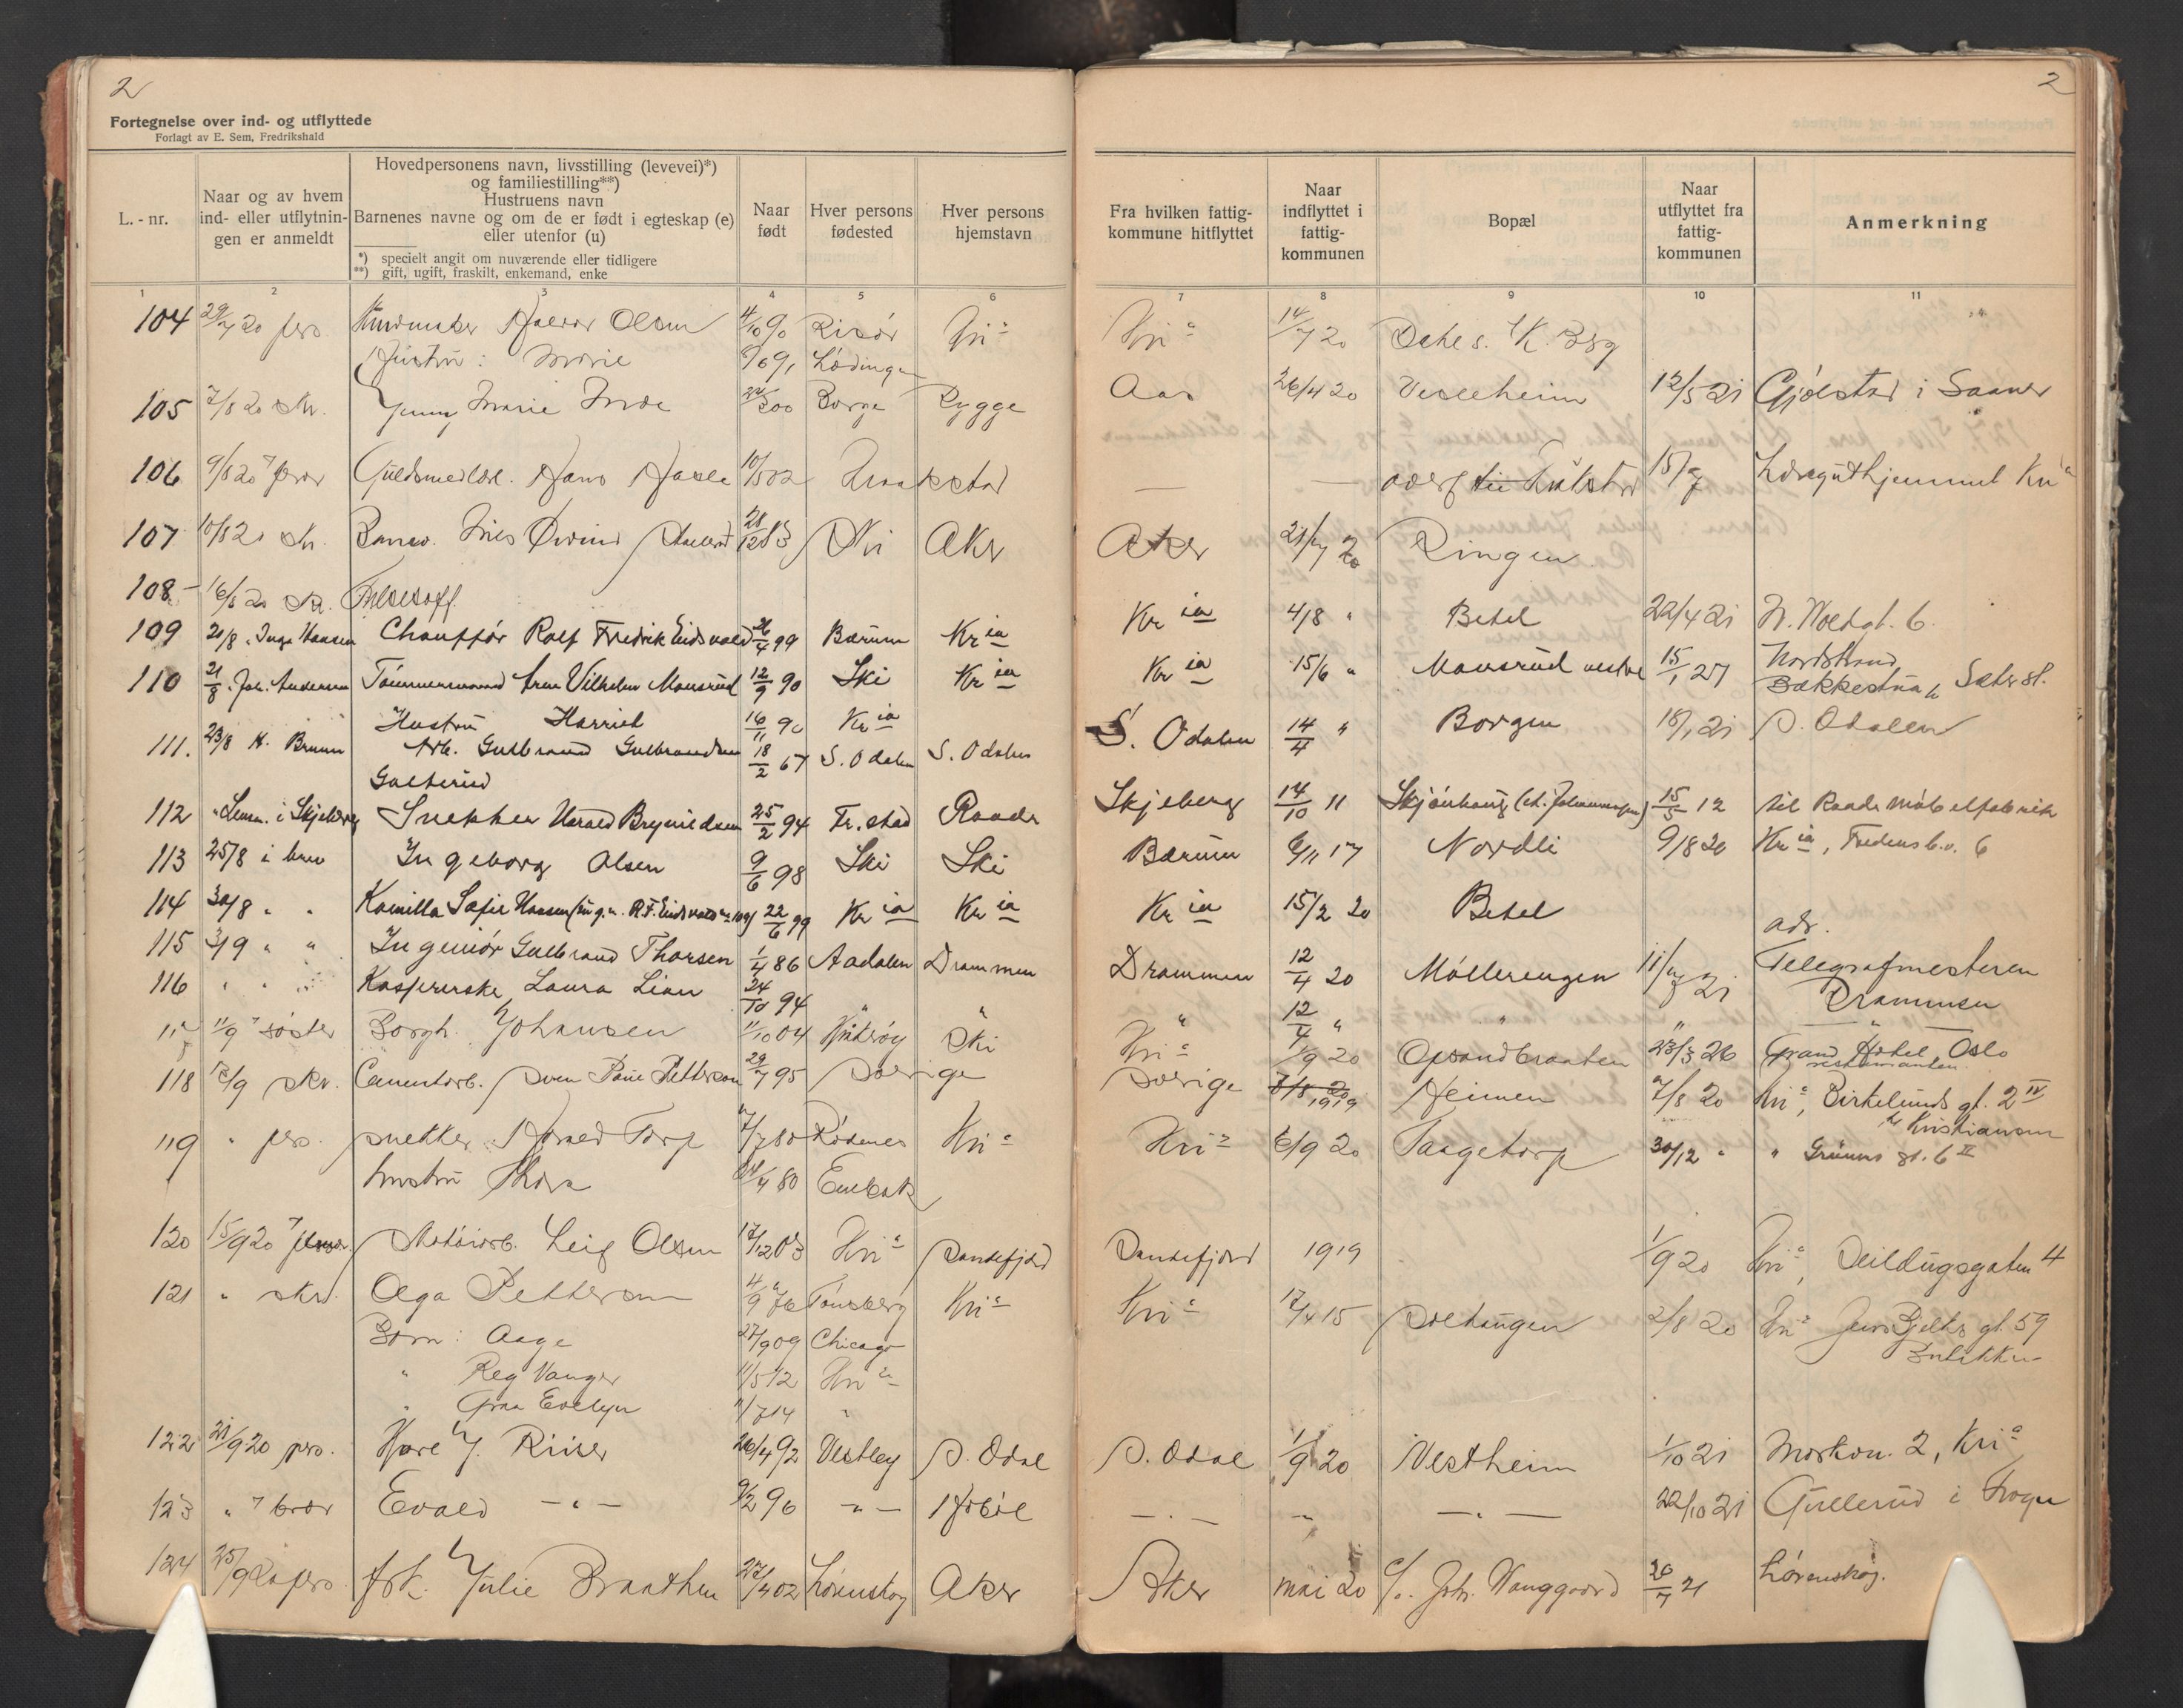 2
Fortegnelse over ind- og utflyttede
Forlagt av E. Sem, Fredrikshald
L. - nr.
Naar og av hvem ind- eller utflytnin- gen er anmeldt
Hovedpersonens navn, livsstilling (levevei)*)
og familiestilling**)
Hustruens navn
Barnenes navne og om de er født i egteskap (e)
eller utenfor (u)
*) specielt angit om nuværende eller tidligere
**) gift, ugift, fraskilt, enkemand, enke
Naar født
Hver persons fødested
Hver persons hjemstavn
1 2 3 4 5 6
104 29/7 20 pers. Halvor Olsen 4/10 90 Risør Kri a
Hustru: Marie Lødingen
105 7/8 20 skr. Jenny Marie Moe Borge Rygge
106 9/8 20 Guldsmedlærl. Hans 10/5 02 Kraakstad
107 10/8 20 skr. Banev. Nils Øivind 28/12 83 Ski Aker
108 - 16/8 20 skr.
109 20/8 . Inga Hansen Chauffør Rolf Fredrik Eidsvold 26/4 99 Bærum Kr ia
110 21/8 . Joh. Andersen Tømmermand Arne Vilhelm Mansrud 12/9 90 Ski Kr ia
Hustru Harriet 16/11 90 Kr ia
111. 23/8 K. Bruun Arb. Gulbrand Gulbrandsen 18/2 67 S. Odalen S. Odalen
112 " Lensm. i Skjeberg Snekker Harald Brynildsen 25/2 94 Fr.stad Raade
113 25/8 i brev Ingeborg Olsen 9/6 98 Ski Ski
114 30/8 " " Kamilla Sofie Hansen 22/6 99 Kr ia Kr ia
115 3/9 " " Ingeniør Gulbrand Thorsen 1/4 86 Aadalen Drammen
116 " " Kassererske Laura Lian 24/10 94 " "
117 11/9 søster Borgh. Johansen 11/10 04 Ski
118 12/9 skr. Cementarb. Sven Petterson 29/7 95 Sverige
119 " pers. snekker Harald Torp 80 Rødenes Kri a
hustru Thora 80 Enebak
120 15/9 20 Leif Olsen 17/12 03 Kri a Sandefjord
121 " skr. Olga Pettersen Tønsberg Kri a
Børn: Aage 27/9 09 Chicago
" Reg Vanger 11/5 12 Kri a
" Evelyn 11/7 14 "
122 21/9 20 pers. Kåre J. Riiser 26/4 92 Vestby S. Odal
123 " bror Evald - " - 9/2 96 - " - Hobøl
124 25/9 20 pers. frk. Julie Braathen 27/4 02 Lørenskog Aker
2
Fra hvilken fattig- kommune hitflyttet
Naar indflyttet i fattig- kommunen
Bopæl
Naar utflyttet fra fattig- kommunen
Anmerkning
7 8 9 10 11
Kri a 14/7 20
Aas 26/4 20 Vesleheim 12/5 21 Gjølstad i Saaner
— — Kri a
Aker 21/7 20 Ringen
Kr ia 4/8 " Betel 22/4 21
Kr ia 15/6 " Mansrud vestre 15/1 27 Nordstrand
S. Odalen 14/4 " Borgen 16/1 21 S. Odalen
Skjeberg 14/10 11 Skjønhaug 15/5 12 til Raade Møbelfabrik
Bærum 6/11 17 Nordli 9/8 20 Kr ia, Fredensb.v. 6
Kr ia 15/2 20 Betel
adr.
Drammen 12/4 20 Møllerengen 11/7 21 Telegrafmesteren
Drammen
" 12/4 " " " — " —
Kri a 1/9 20 Opsandbraaten 23/3 26 Grand Hotel, Oslo
restauranten
Sverige 1919 Heimen 7/8 20 Kri a, Birkelunds gt. 2 IV
Kristiansen
Kri a 6/9 20 Taagetorp 30/12 " " Grüners gt. 6 II
Sandefjord 1919 1/9 20 Kri a, Seildugsgaten 4
Kri a 17/4 15 Solhaugen 2/8 20 Kri a Jens Bjelkes gt. 59
Butikken
S. Odal 1/9 20 Vestheim 1/10 21 Markv. 2, Kri a
— " — " — " — 22/10 21 Gullerud i
Aker mai 20 c/o. Joh. Wanggaard 26/7 21 Lørenskog.